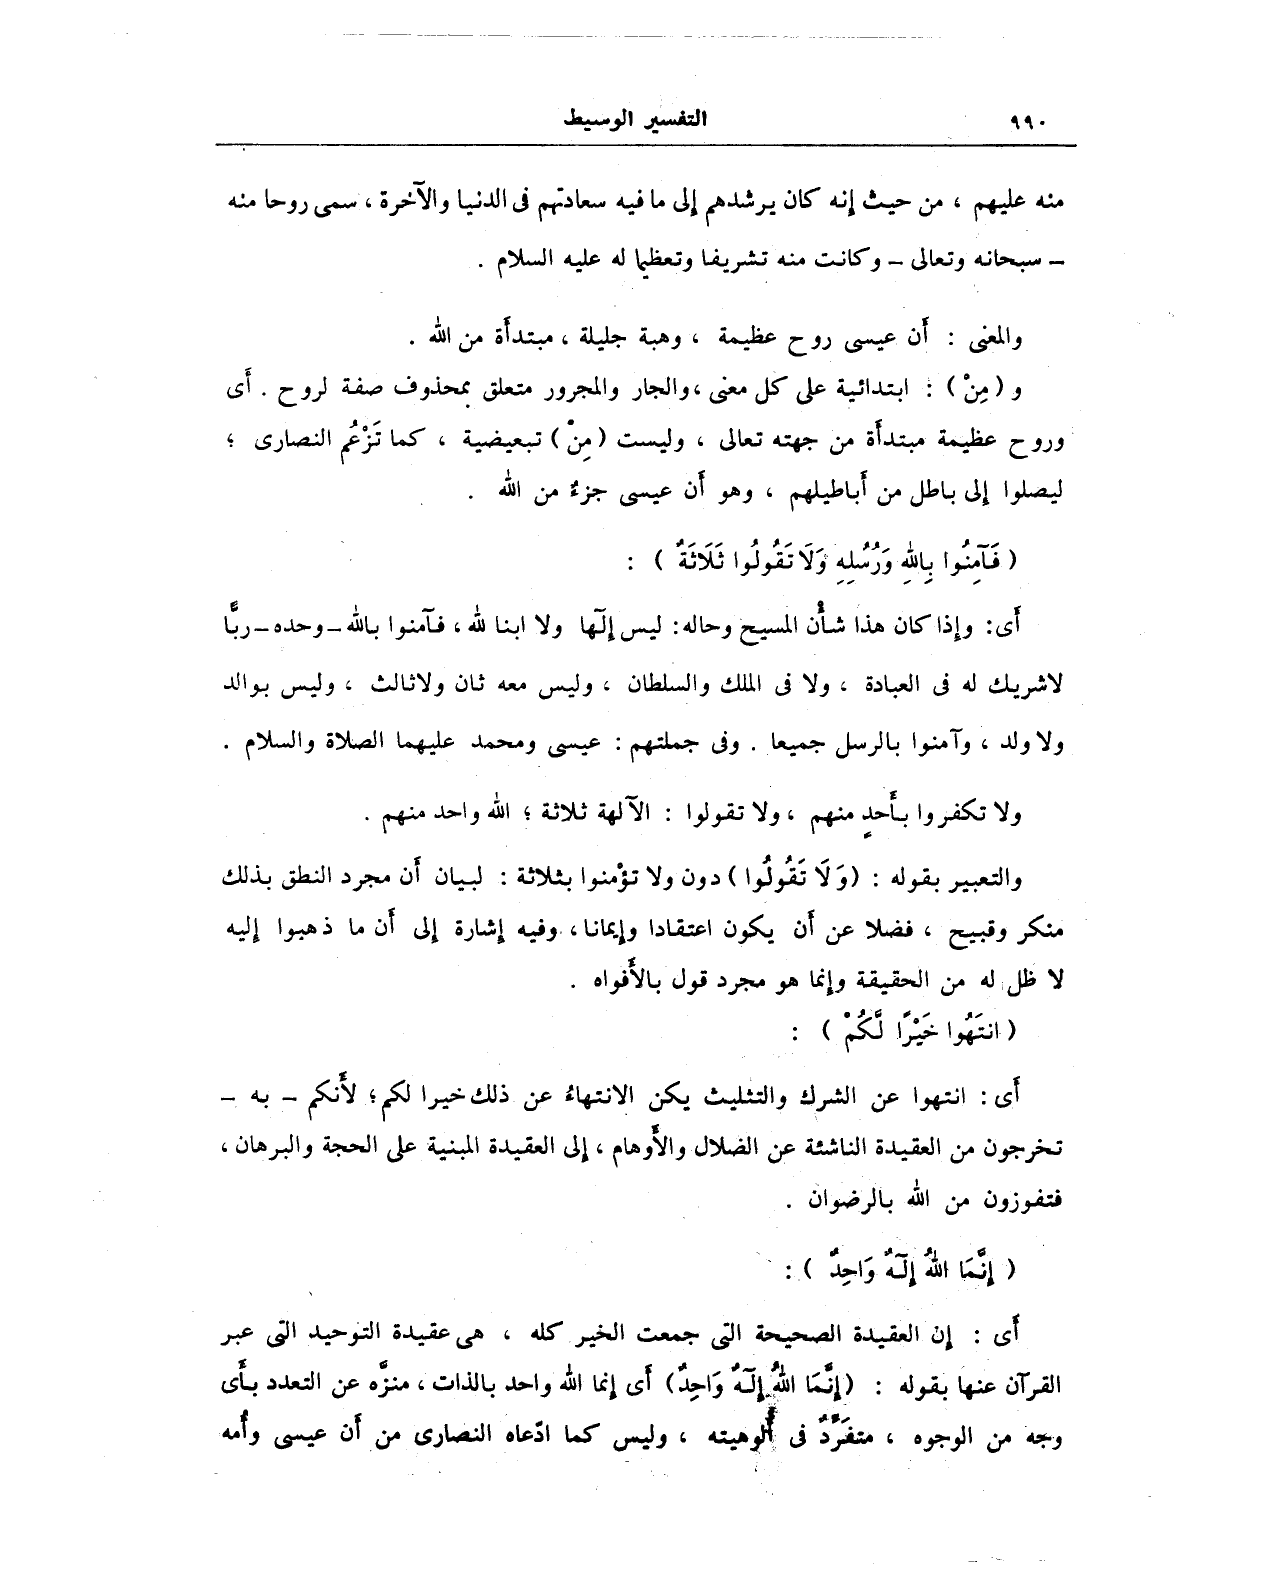 ٩٩٠
التفسير الوسيط
منه عليهم ، من حيث إنه كان يرشدهم إلى ما فيه سعادتهم فى الدنيا والآخرة ، سمى روحا منه
– سبحانه وتعالى – وكانت منه تشريفا وتعظيما له عليه السلام .
والمعنى : أن عيسى روح عظيمة ، وهبة جليلة ، مبتدأة من الله .
و ( مِنْ ) : ابتدائية على كل معنى ، والجار والمجرور متعلق بمحذوف صفة لروح . أى
وروح عظيمة مبتدأة من جهته تعالى ، وليست ( مِنْ ) تبعيضية ، كما تَزْعُم النصارى ؛
ليصلوا إلى باطل من أباطيلهم ، وهو أن عيسى جزءٌ من الله .
( فَآمِنُوا بِاللهِ وَرُسُلِهِ وَلَا تَقُولُوا ثَلَاثَةٌ ) :
أى : وإذا كان هذا شأْن المسيح وحاله : ليس إلٓها ولا ابنا لله ، فآمنوا بالله – وحده – ربًّا
لاشريك له فى العبادة ، ولا فى الملك والسلطان ، وليس معه ثان ولاثالث ، وليس بوالد
ولا ولد ، وآمنوا بالرسل جميعا . وفى جملتهم : عيسى ومحمد عليهما الصلاة والسلام .
ولا تكفروا بأَحدٍ منهم ، ولا تقولوا : الآلهة ثلاثة ؛ الله واحد منهم .
والتعبير بقوله : ( وَلَا تَقُولُوا ) دون ولا تؤْمنوا بثلاثة : لبيان أن مجرد النطق بذلك
منكر وقبيح ، فضلا عن أن يكون اعتقادا وإيمانا ، وفيه إشارة إلى أن ما ذهبوا إليه
لا ظل له من الحقيقة وإنما هو مجرد قول بالأَفواه .
( انتَهُوا خَيْرًا لَّكُمْ ) :
أى : انتهوا عن الشرك والتثليث يكن الانتهاءُ عن ذلك خيرا لكم ؛ لأَنكم – به –
تخرجون من العقيدة الناشئة عن الضلال والأَوهام ، إلى العقيدة المبنية على الحجة والبرهان ،
فتفوزون من الله بالرضوان .
( إِنَّمَا اللهُ إِلَٓهٌ وَاحِدٌ ) :
أى : إن العقيدة الصحيحة التى جمعت الخير كله ، هى عقيدة التوحيد التى عبر
القرآن عنها بقوله : ( إِنَّمَا اللهُ إِلَٓهٌ وَاحِدٌ ) أى إنما الله واحد بالذات ، منزَّه عن التعدد بأَى
وجه من الوجوه ، متفَرِّدٌ فى أُلوهيته ، وليس كما ادّعاه النصارى من أن عيسى وأُمه